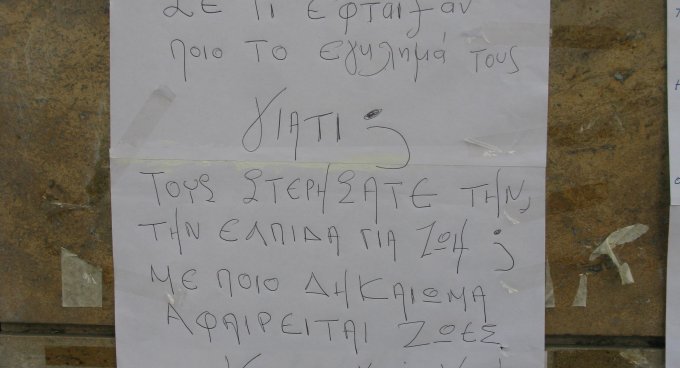 ΣΕ ΤΙ ΕΦΤΑΙξΑΝ
ποιο ΤΟ εγκλημά τους
ΓΙΑΤΙ ;
ΤΟΥΣ ΣΤΕΡΗΣΑΤΕ ΤΗΝ,
ΤΗΝ ΕΛΠΙΔΑ ΓΙΑ ΖΩΗ ;
ΜΕ ποιο ΔΗΚΑΙΩΜΑ
ΑΦΑΙΡΕΙΤΑΙ ΖΩΕΣ